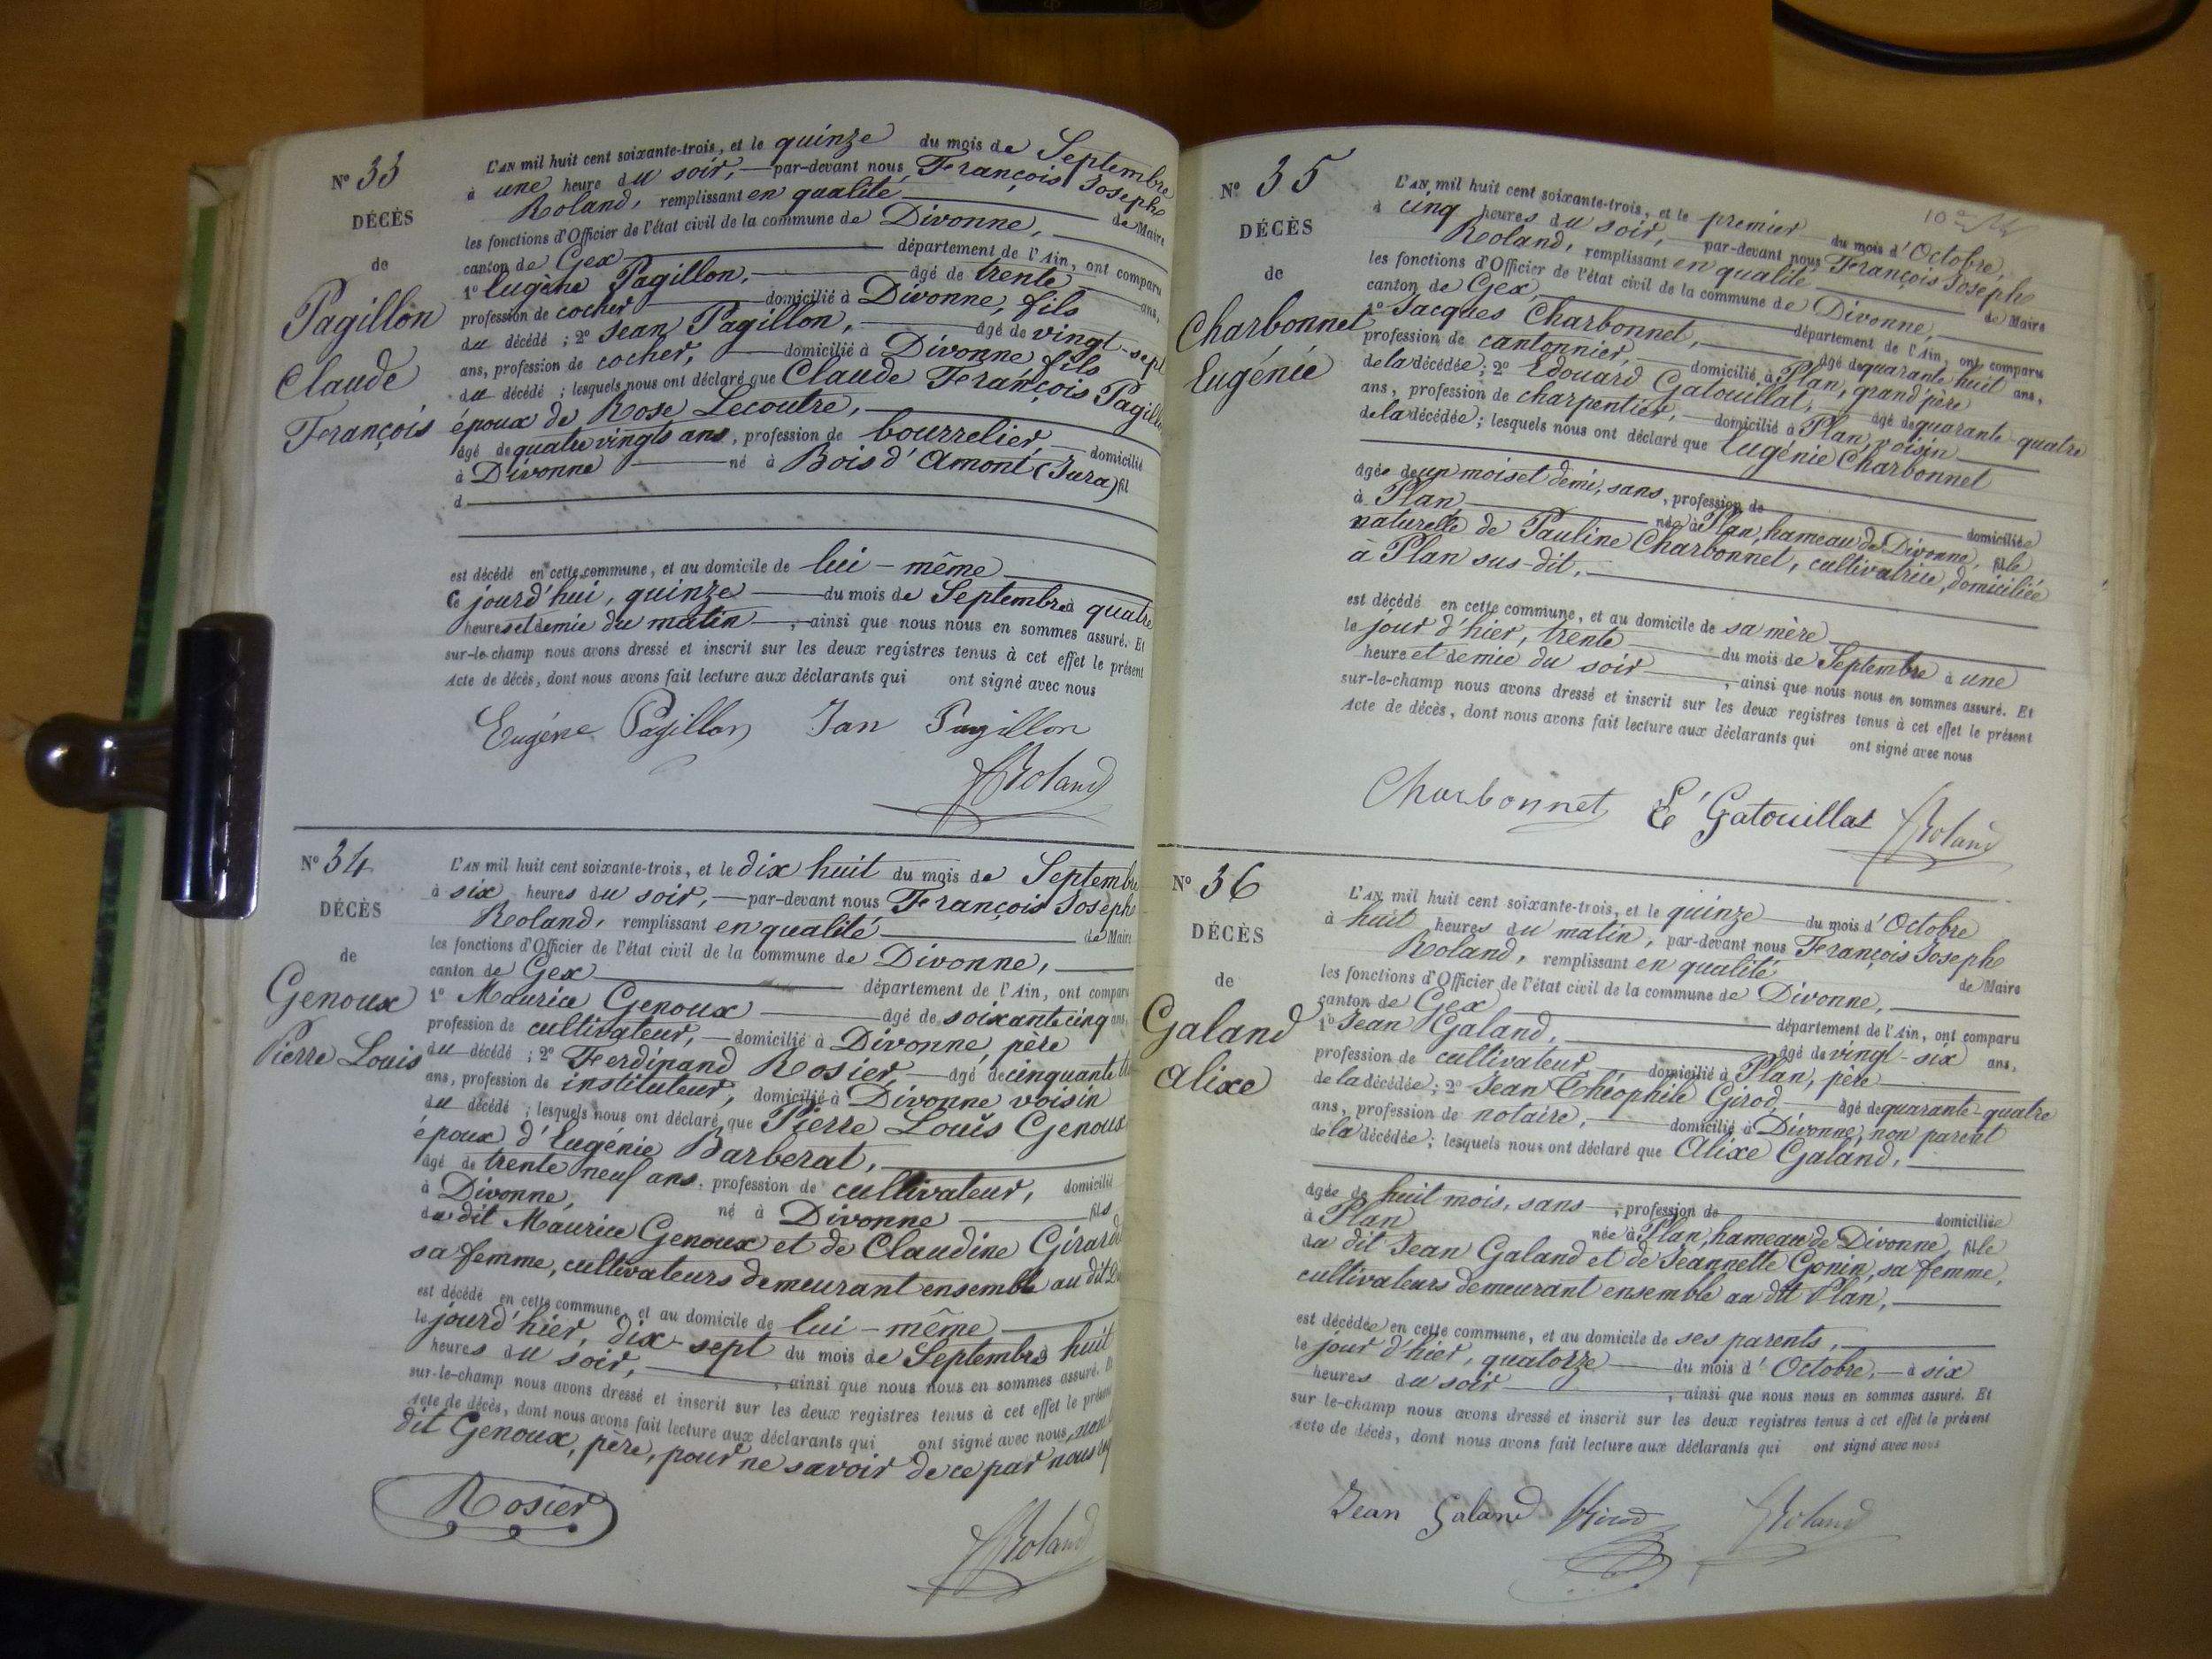 N° 33
DÉCÈS
de
Pagillon
Claude
François
L'AN mil huit cent soixante-trois, et le quinze du mois de Septembre
à une heure du soir, par-devant nous François Joseph
Roland, remplissant en qualité de Maire
les fonctions d'Officier de l'état civil de la commune de Divonne,
canton de Gex département de l'Ain, ont comparu
1° Eugène Pagillon, âgé de trente ans,
profession de cocher domicilié à Divonne, fils
du décédé ; 2° Jean Pagillon, âgé de vingt-sept
ans, profession de cocher, domicilié à Divonne fils
du décédé ; lesquels nous ont déclaré que Claude François Pagillon
époux de Rose Lecoultre,
âgé de quatre vingts ans, profession de bourrelier domicilié
à Divonne né à Bois d'Amont (Jura) fil
d
est décédé en cette commune, et au domicile de lui-même
Ce jourd'hui, quinze du mois de Septembre à quatre
heures et demie du matin, ainsi que nous nous en sommes assuré. Et
sur-le-champ nous avons dressé et inscrit sur les deux registres tenus à cet effet le présent
Acte de décès, dont nous avons fait lecture aux déclarants qui ont signé avec nous
Eugéne Pagillon Jan Pagillon
Roland
N° 34
DÉCÈS
de
Genoux
Pierre Louis
L'AN mil huit cent soixante-trois, et le dix huit du mois de Septembre
à six heures du soir, par-devant nous François Joseph
Roland, remplissant en qualité de Maire
les fonctions d'Officier de l'état civil de la commune de Divonne,
canton de Gex département de l'Ain, ont comparu
1° Maurice Genoux âgé de soixante cinq ans,
profession de cultivateur, domicilié à Divonne, père
du décédé ; 2° Ferdinand Rosier, âgé de cinquante
ans, profession de instituteur, domicilié à Divonne voisin
du décédé ; lesquels nous ont déclaré que Pierre Louis Genoux
époux d'Eugénie Barberat,
âgé de trente neuf ans, profession de cultivateur, domicilié
à Divonne, né à Divonne fils
du dit Maurice Genoux et de Claudine Girard
sa femme, cultivateurs demeurant ensemble au dit
est décédé en cette commune, et au domicile de lui-même
le jourd'hier, dix-sept du mois de Septembre à huit
heures du soir, ainsi que nous nous en sommes assuré. Et
sur-le-champ nous avons dressé et inscrit sur les deux registres tenus à cet effet le présent
Acte de décès, dont nous avons fait lecture aux déclarants qui ont signé avec nous,
dit Genoux, père, pour ne savoir de ce par nous
Rosier
Roland
N° 35
DÉCÈS
de
Charbonnet
Eugénie
L'AN mil huit cent soixante-trois, et le premier du mois d'Octobre,
à cinq heures du soir, par-devant nous François Joseph
Roland, remplissant en qualité de Maire
les fonctions d'Officier de l'état civil de la commune de Divonne,
canton de Gex, département de l'Ain, ont comparu
1° Jacques Charbonnet, âgé de quarante huit ans,
profession de cantonnier, domicilié à Plan, grand'père
de la décédée ; 2° Edouard Gatouillat, âgé de quarante-quatre
ans, profession de charpentier, domicilié à Plan, voisin
de la décédée ; lesquels nous ont déclaré que Eugénie Charbonnet
âgée de un mois et demi, sans, profession de domiciliée
à Plan née à Plan, hameau de Divonne, fille
naturelle de Pauline Charbonnet, cultivatrice, domiciliée
à Plan sus-dit,
est décédé en cette commune, et au domicile de sa mère
le jour d'hier, trente du mois de Septembre à une
heure et demie du soir, ainsi que nous nous en sommes assuré. Et
sur-le-champ nous avons dressé et inscrit sur les deux registres tenus à cet effet le présent
Acte de décès, dont nous avons fait lecture aux déclarants qui ont signé avec nous
Charbonnet E Gatouillat Roland
N° 36
DÉCÈS
de
Galand
Alixe
L'AN mil huit cent soixante-trois, et le quinze du mois d'Octobre
à huit heures du matin, par-devant nous François Joseph
Roland, remplissant en qualité de Maire
les fonctions d'Officier de l'état civil de la commune de Divonne,
canton de Gex département de l'Ain, ont comparu
1° Jean Galand, âgé de vingt-six ans,
profession de cultivateur domicilié à Plan, père
de la décédée ; 2° Jean Théophile Girod, âgé de quarante-quatre
ans, profession de notaire, domicilié à Divonne, non parent
de la décédée ; lesquels nous ont déclaré que Alixe Galand,
âgée de huit mois, sans, profession de domiciliée
à Plan née à Plan, hameau de Divonne, fille
du dit Jean Galand et de Jeannette Gonin, sa femme,
cultivateurs demeurant ensemble au dit Plan,
est décédée en cette commune, et au domicile de ses parents,
le jour d'hier, quatorze du mois d'Octobre, à six
heures du soir, ainsi que nous nous en sommes assuré. Et
sur le-champ nous avons dressé et inscrit sur les deux registres tenus à cet effet le présent
Acte de décès, dont nous avons fait lecture aux déclarants qui ont signé avec nous
Jean Galand Girod Roland